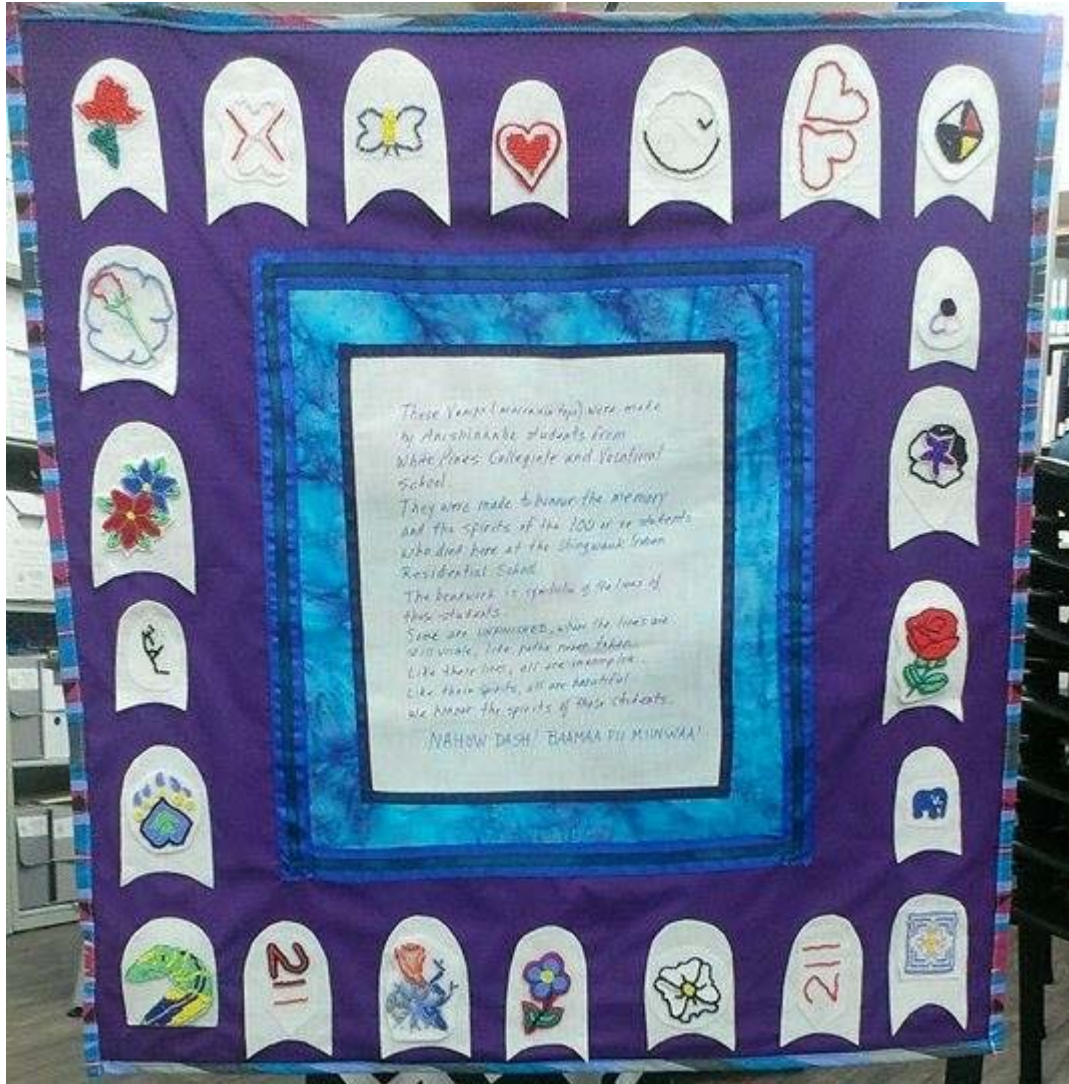 These Vamps (moccasin tops) were made
by Anishinaabe students from
White Pines Collegiate and Vocational
School.
They were made to honour the memory
and the spirits of the 100 or so students
who died here at the Shingwauk Indian
Residential School
The beadwork is symbolic of the lives of
those students.
Some are UNFINISHED, where the lines are
still visible, like paths never taken.
Like their lives, all are incomplete.
Like their spirits, all are beautiful
We honor the spirits of these students.
NAHOW DASH! BAAMAA PII MIINWAA!
211
211